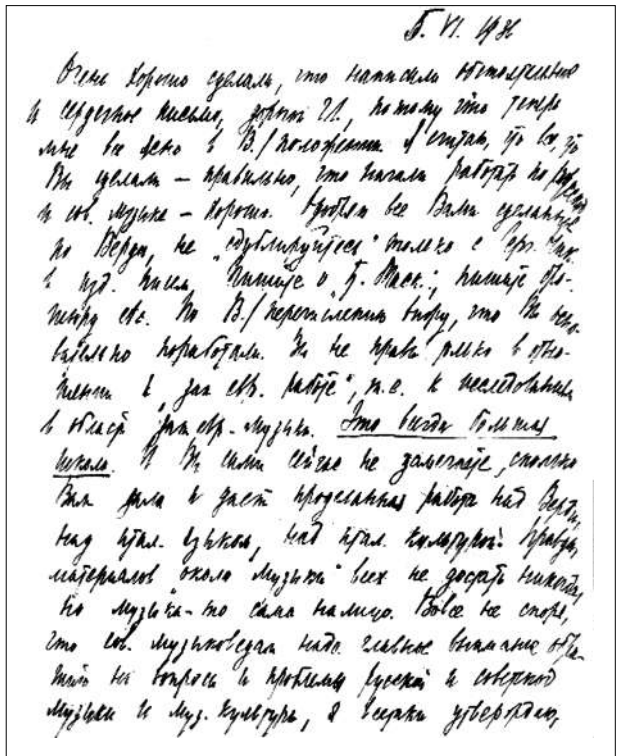 5. VI. 1936
Очень хорошо сделали, что написали обстоятельное
и сердечное письмо, дорогой, потому что теперь
мне все ясно в В./положении. Я считаю, что все, что
Вы сделали — правильно, что начали работать по русской
и сов. музыке — хорошо. Одобряю все Вами сделанное
по Верди, не „сдублируйтесь" только с
в изд. писем. Пишите о „Б. Маск."; пишите
etc. По В./перечислению вижу, что Вы осно-
вательно поработали. Вы не правы только в отно-
шении к „зап. евр. работе", т.е. к исследованиям
в области зап. евр. музыки. Это всегда большая
школа. И Вы сами сейчас не замечаете, сколько
Вам дала и даст проделанная работа над Верди,
над итал. языком, над итал. культурой. Правда,
материалов „около музыки" всех не достать никогда,
но музыка-то сама налицо. Вовсе не спорю,
что сов. музыковедам надо главное внимание обра-
тить на вопросы и проблемы русской и советской
музыки и муз. культуры, я всё-таки утверждаю,